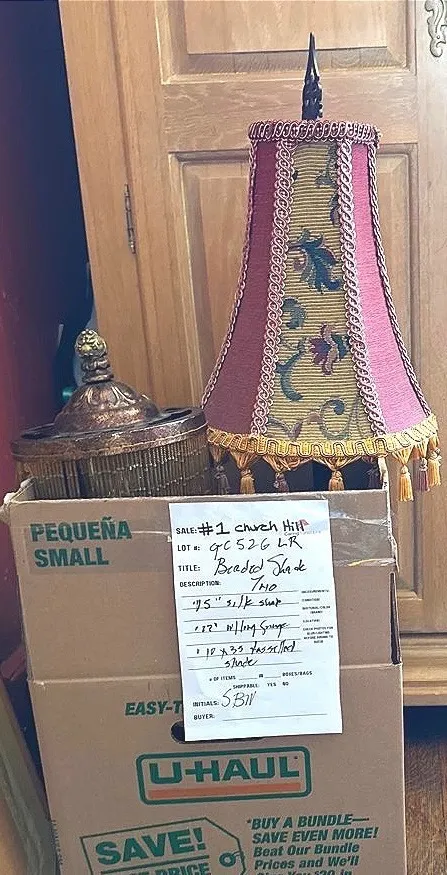 PEQUEÑA
SMALL
SALE: #1 Church Hill
LOT #: GC526 LR
TITLE: Beaded Shade
DESCRIPTION:
MEASUREMENTS
CONDITION
LOCATION
15" silk shade
10 x 33 tasselled
shade
# OF ITEMS IN BOXES/BAGS
SHIPPABLE: YES NO
INITIALS: SBW
BUYER:
EASY-T
U-HAUL
SAVE!
PRICE
*BUY A BUNDLE—
SAVE EVEN MORE!
Beat Our Bundle
Prices and We'll
Give You $20 in